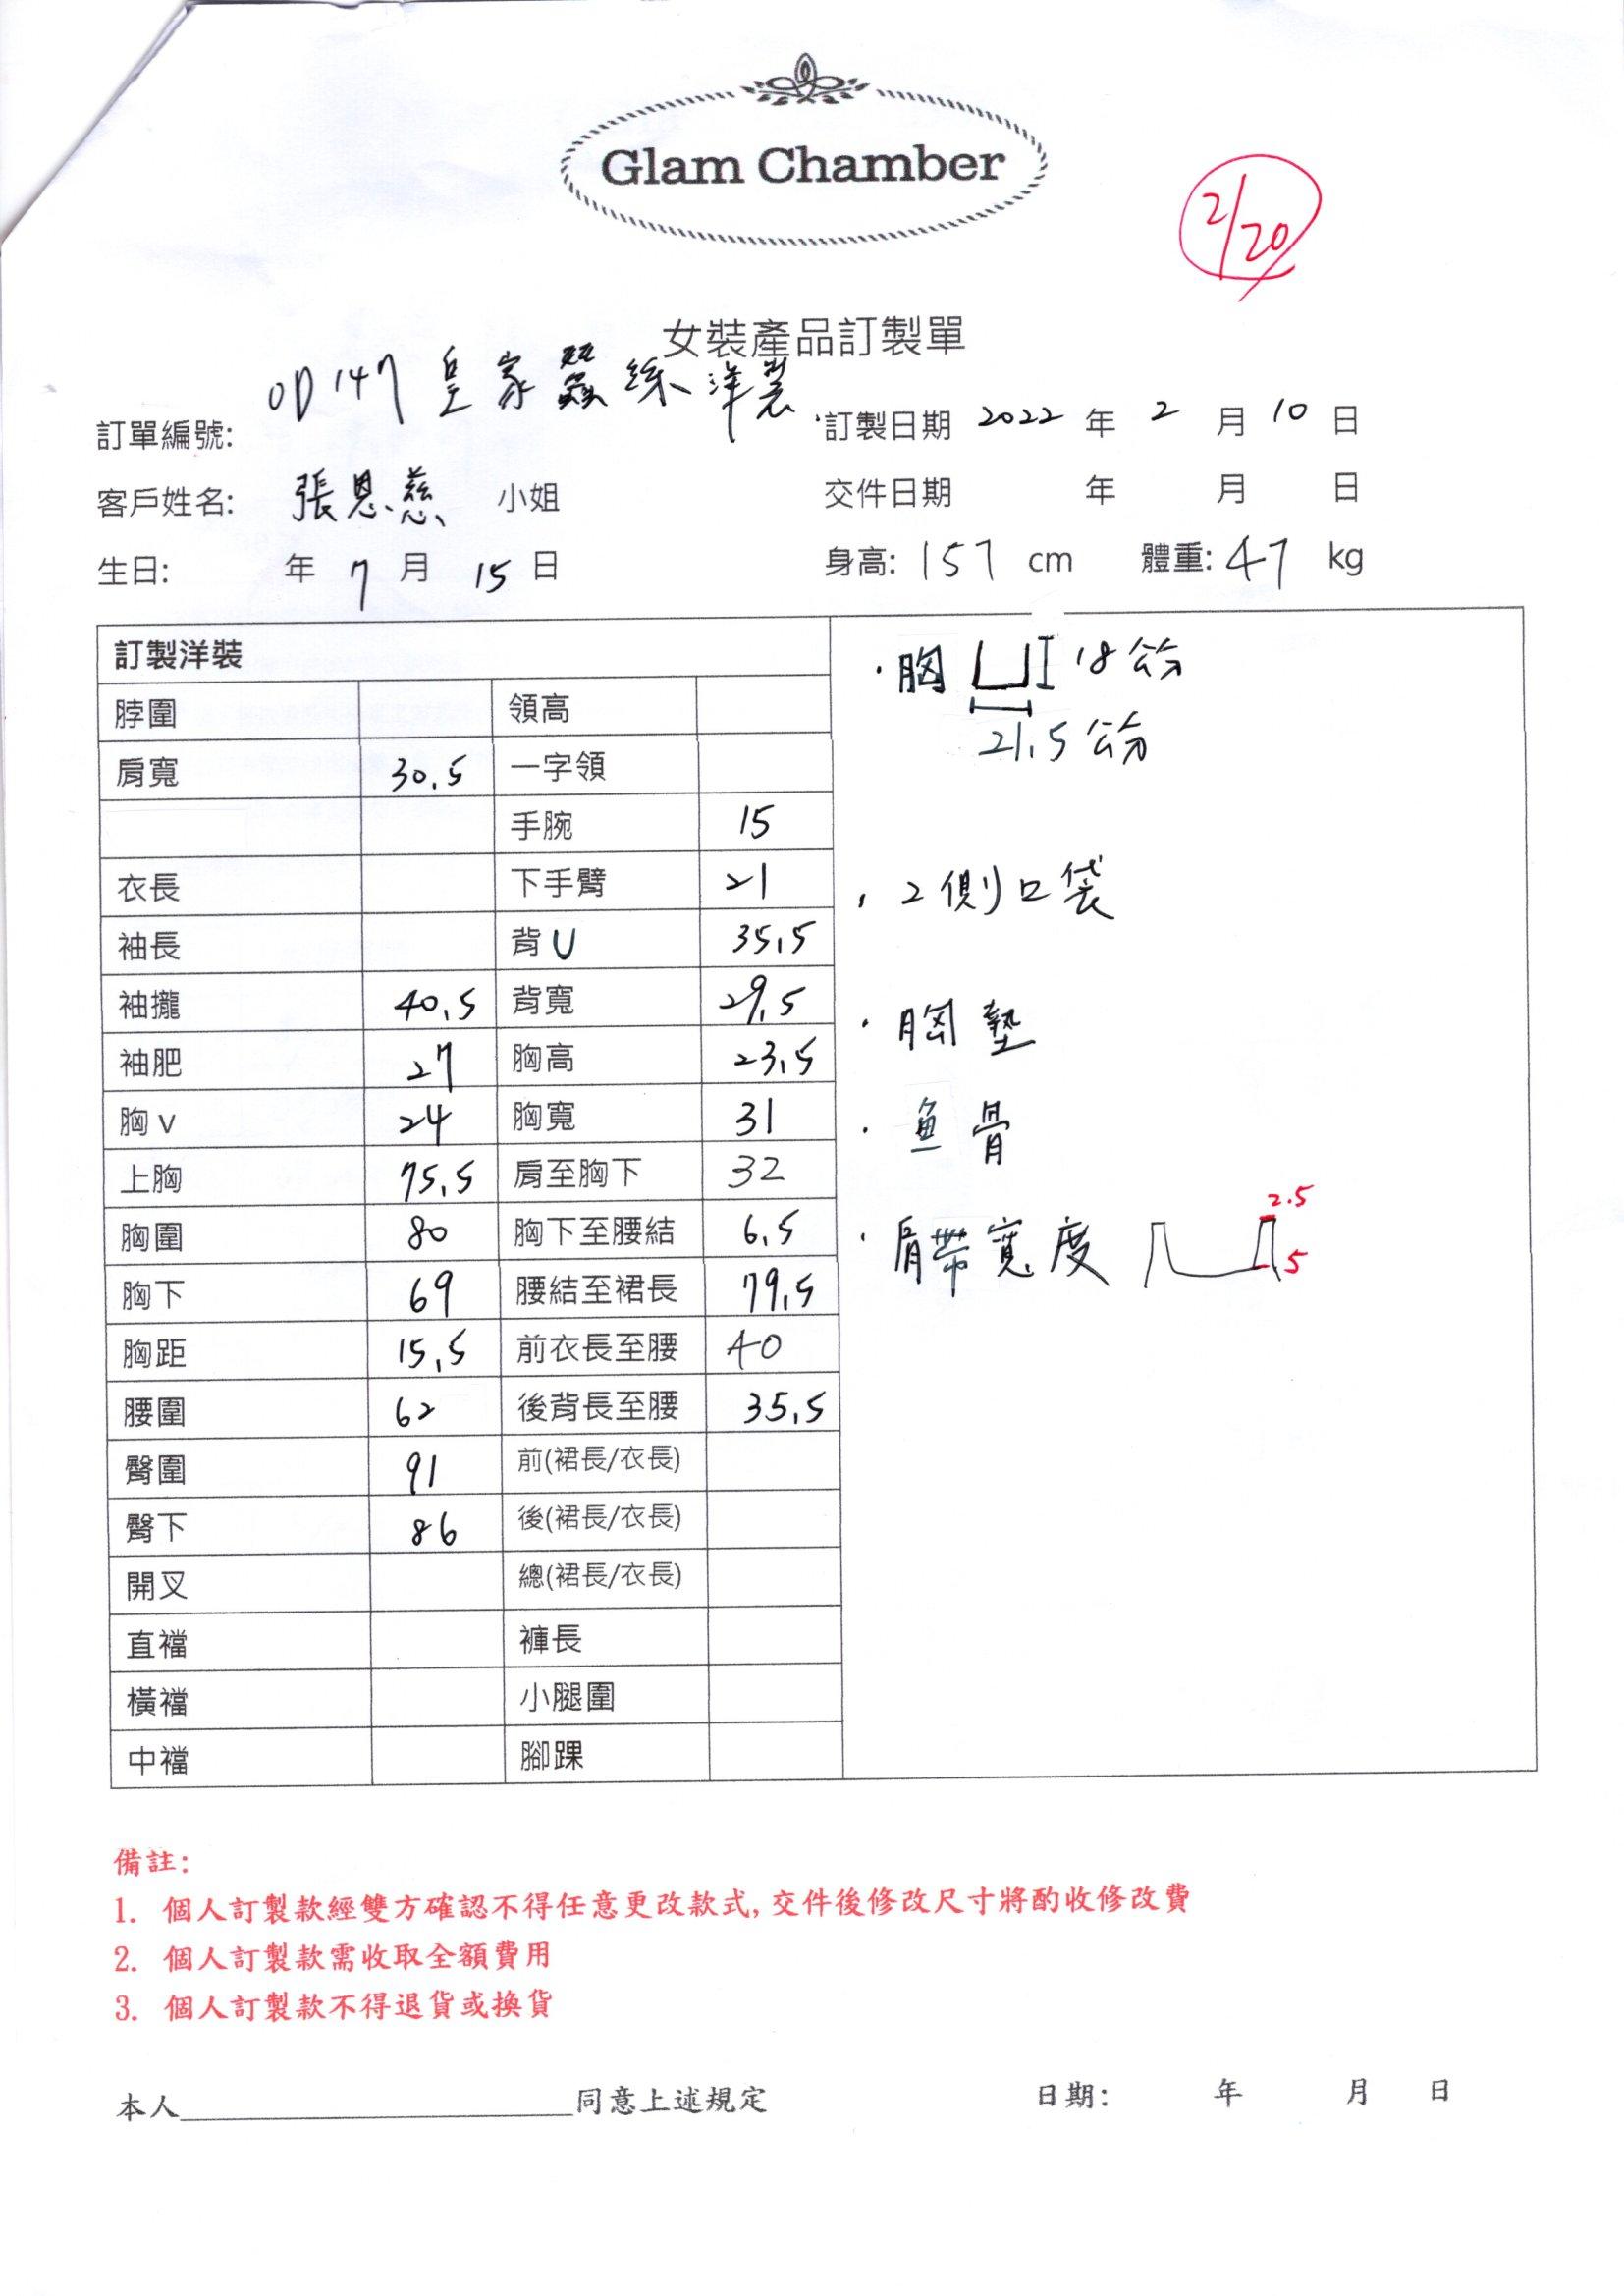 Glam Chamber
2/20
女裝產品訂製單
訂單編號: OD147 皇家蠶絲洋裝 訂製日期 2022 年 2 月 10 日
客戶姓名: 張恩慈 小姐 交件日期 年 月 日
生日: 年 7 月 15 日 身高: 157 cm 體重: 47 kg
訂製洋裝
脖圍 領高
肩寬 30.5 一字領
手腕 15
衣長 下手臂 21
袖長 背U 35.5
袖攏 40.5 背寬 29.5
袖肥 27 胸高 23.5
胸 v 24 胸寬 31
上胸 75.5 肩至胸下 32
胸圍 80 胸下至腰結 6.5
胸下 69 腰結至裙長 79.5
胸距 15.5 前衣長至腰 40
腰圍 62 後背長至腰 35.5
臀圍 91 前(裙長/衣長)
臀下 86 後(裙長/衣長)
開叉 總(裙長/衣長)
直襠 褲長
橫襠 小腿圍
中襠 腳踝
·胸 18公分
21.5公分
,2側口袋
·胸墊
·魚骨
·肩帶寬度 2.5
5
備註:
1. 個人訂製款經雙方確認不得任意更改款式,交件後修改尺寸將酌收修改費
2. 個人訂製款需收取全額費用
3. 個人訂製款不得退貨或換貨
本人____________________同意上述規定 日期: 年 月 日